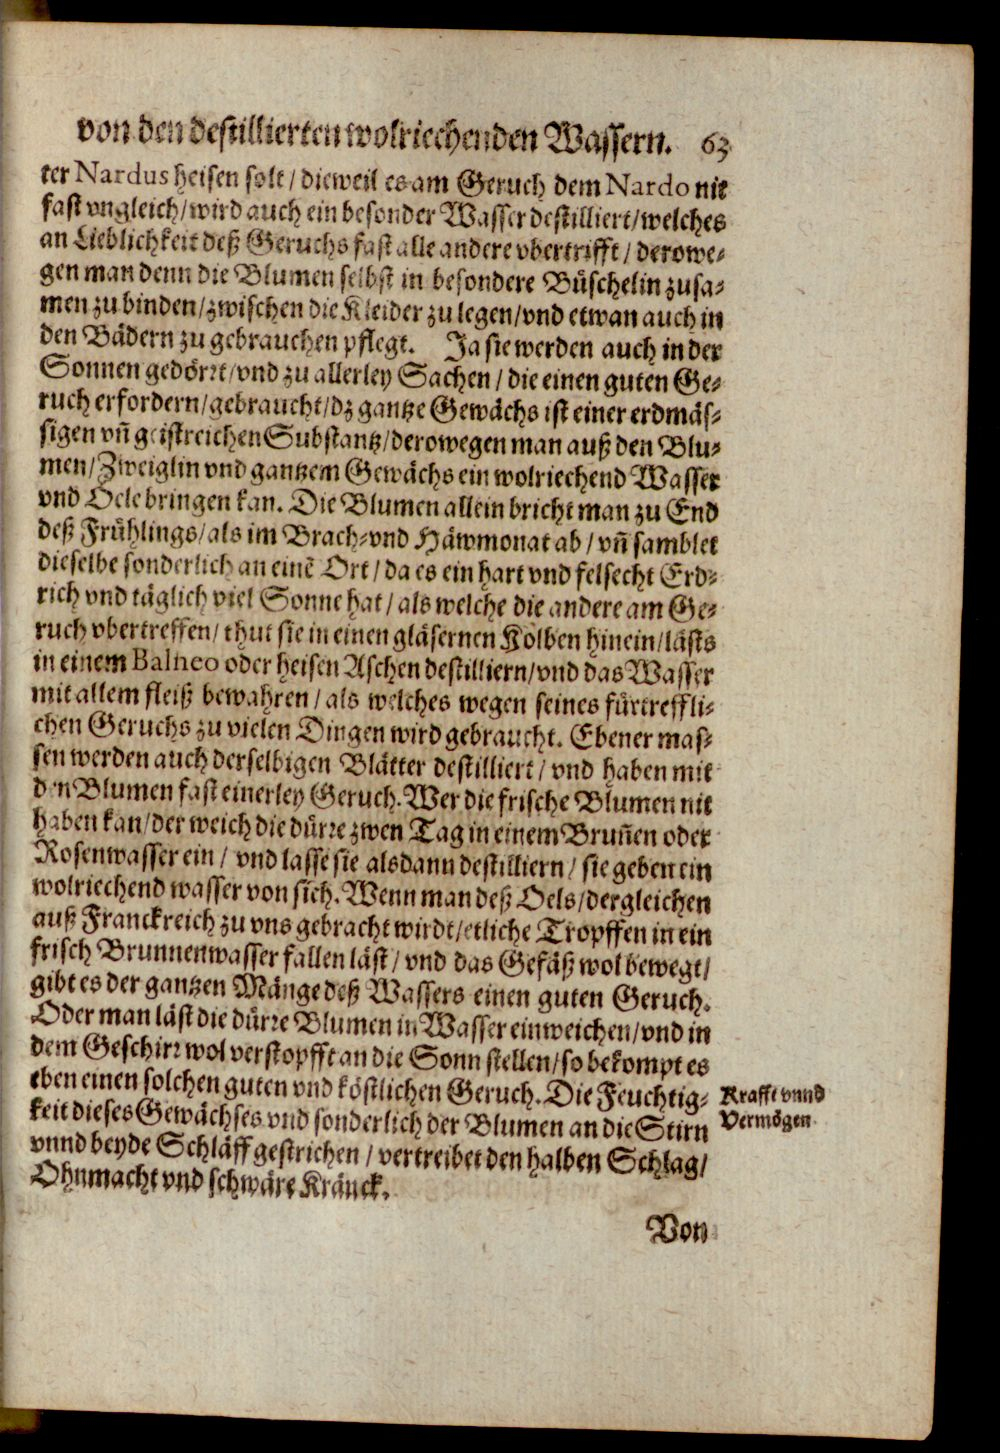 von den destillierten wolriechenden Wassern. 63
ter Nardus heisen solt / dieweil es am Geruch dem Nardo nit
fast vngleich / wird auch ein besonder Wasser destilliert / welches
an Lieblichkeit deß Geruchs fast alle andere vbertrifft / derowe-
gen man denn die Blumen selbst in besondere Büschelin zusa-
men zu binden / zwischen die Kleider zu legen / vnd etwan auch in
den Bädern zu gebrauchen pflegt. Ja sie werden auch in der
Sonnen gedörrt / vnd zu allerley Sachen / die einen guten Ge-
ruch erfordern / gebraucht / dz gantze Gewächs ist einer erdmäs-
sigen vñ geistreichen Substantz / derowegen man auß den Blu-
men / Zweiglin vnd gantzem Gewächs ein wolriechend Wasser
vnd Oele bringen kan. Die Blumen allein bricht man zu End
deß Frühlings / als im Brach- vnd Häwmonat ab / vñ samblet
dieselbe sonderlich an einẽ Ort / da es ein hart vnd felsecht Erd-
rich vnd täglich viel Sonne hat / als welche die andere am Ge-
ruch vbertreffen / thut sie in einen gläsernen Kolben hinein / lästs
in einem Balneo oder heisen Aschen destilliern / vnd das Wasser
mit allem fleiß bewahren / als welches wegen seines fürtreffli-
chen Geruchs zu vielen Dingen wird gebraucht. Ebener mas-
sen werden auch derselbigen Blätter destilliert / vnd haben mit
den Blumen fast einerley Geruch. Wer die frische Blumen nit
haben kan / der weich die dürre zwen Tag in einem Bruñen oder
Rosenwasser ein / vnd lasse sie alsdann destilliern / sie geben ein
wolriechend wasser von sich. Wenn man deß Oels / dergleichen
auß Franckreich zu vns gebracht wirdt / etliche Tropffen in ein
frisch Brunnenwasser fallen läst / vnd das Gefäß wol bewegt /
gibt es der gantzen Mänge deß Wassers einen guten Geruch.
Oder man läst die dürre Blumen in Wasser einweichen / vnd in
dem Geschirr wol verstopfft an die Sonn stellen / so bekompt es
eben einen solchen guten vnd köstlichen Geruch. Die Feuchtig-
keit dieses Gewächses vnd sonderlich der Blumen an die Stirn
vnnd beyde Schläff gestrichen / vertreibet den halben Schlag /
Ohnmacht vnd schwäre Kränck.
Krafft vnnd
Vermögen.
Von